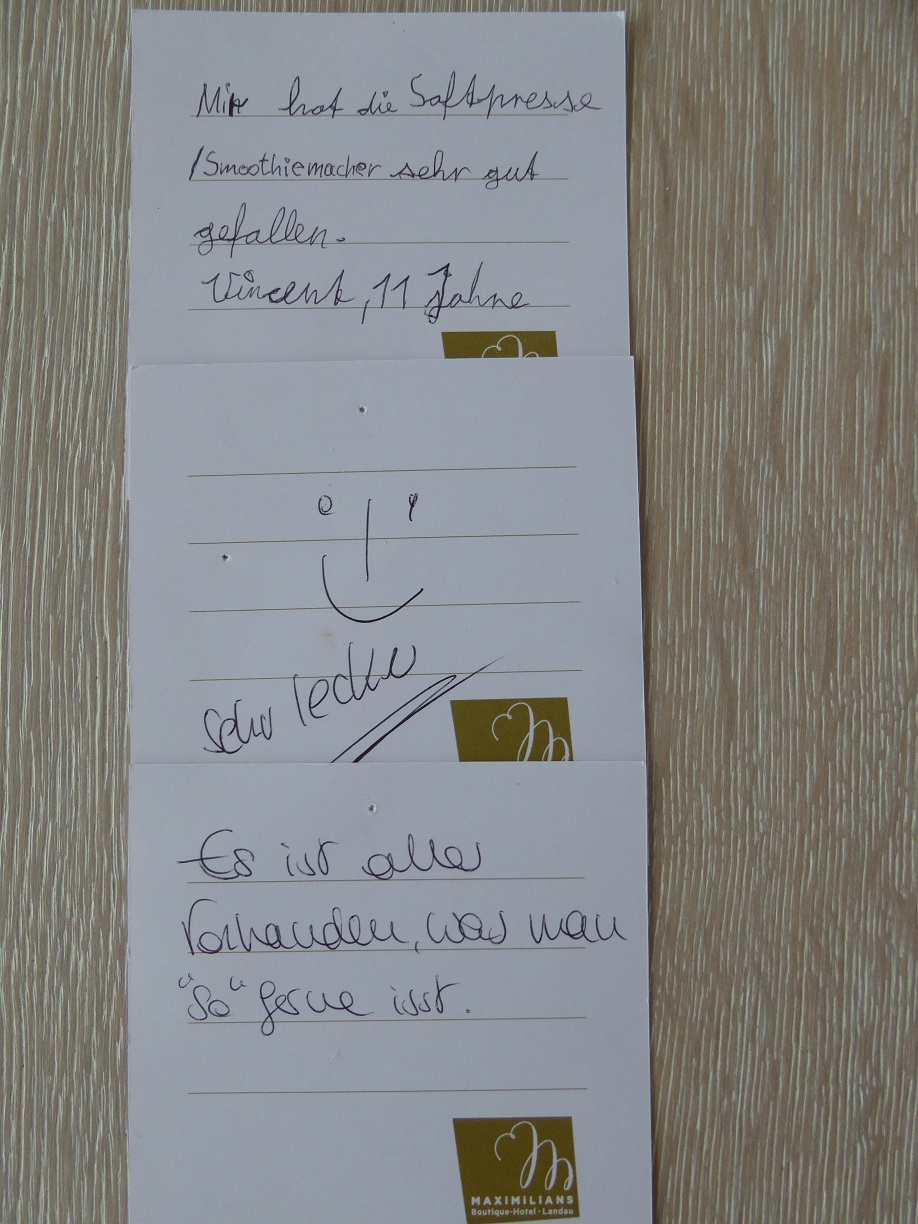 Mir hat die Saftpresse
/Smoothiemacher sehr gut
gefallen.
Vincent, 11 Jahre
sehr lecker
Es ist alles
vorhanden, was man
"so" gerne isst.
MAXIMILIANS
Boutique-Hotel · Landau